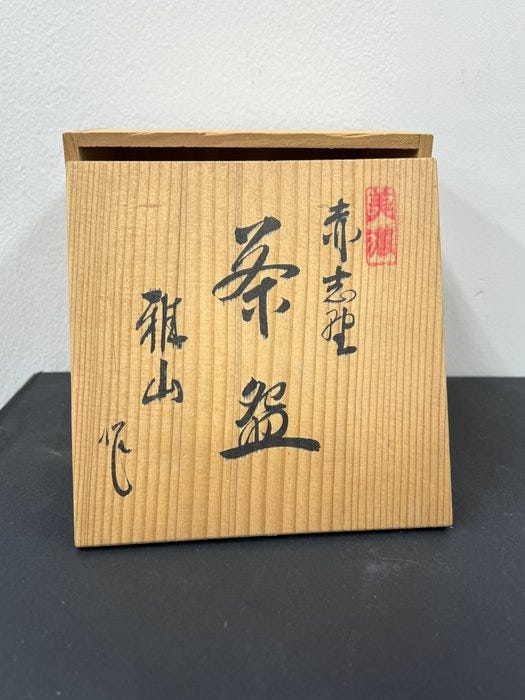 美濃
赤志野
茶盌
雅山
作